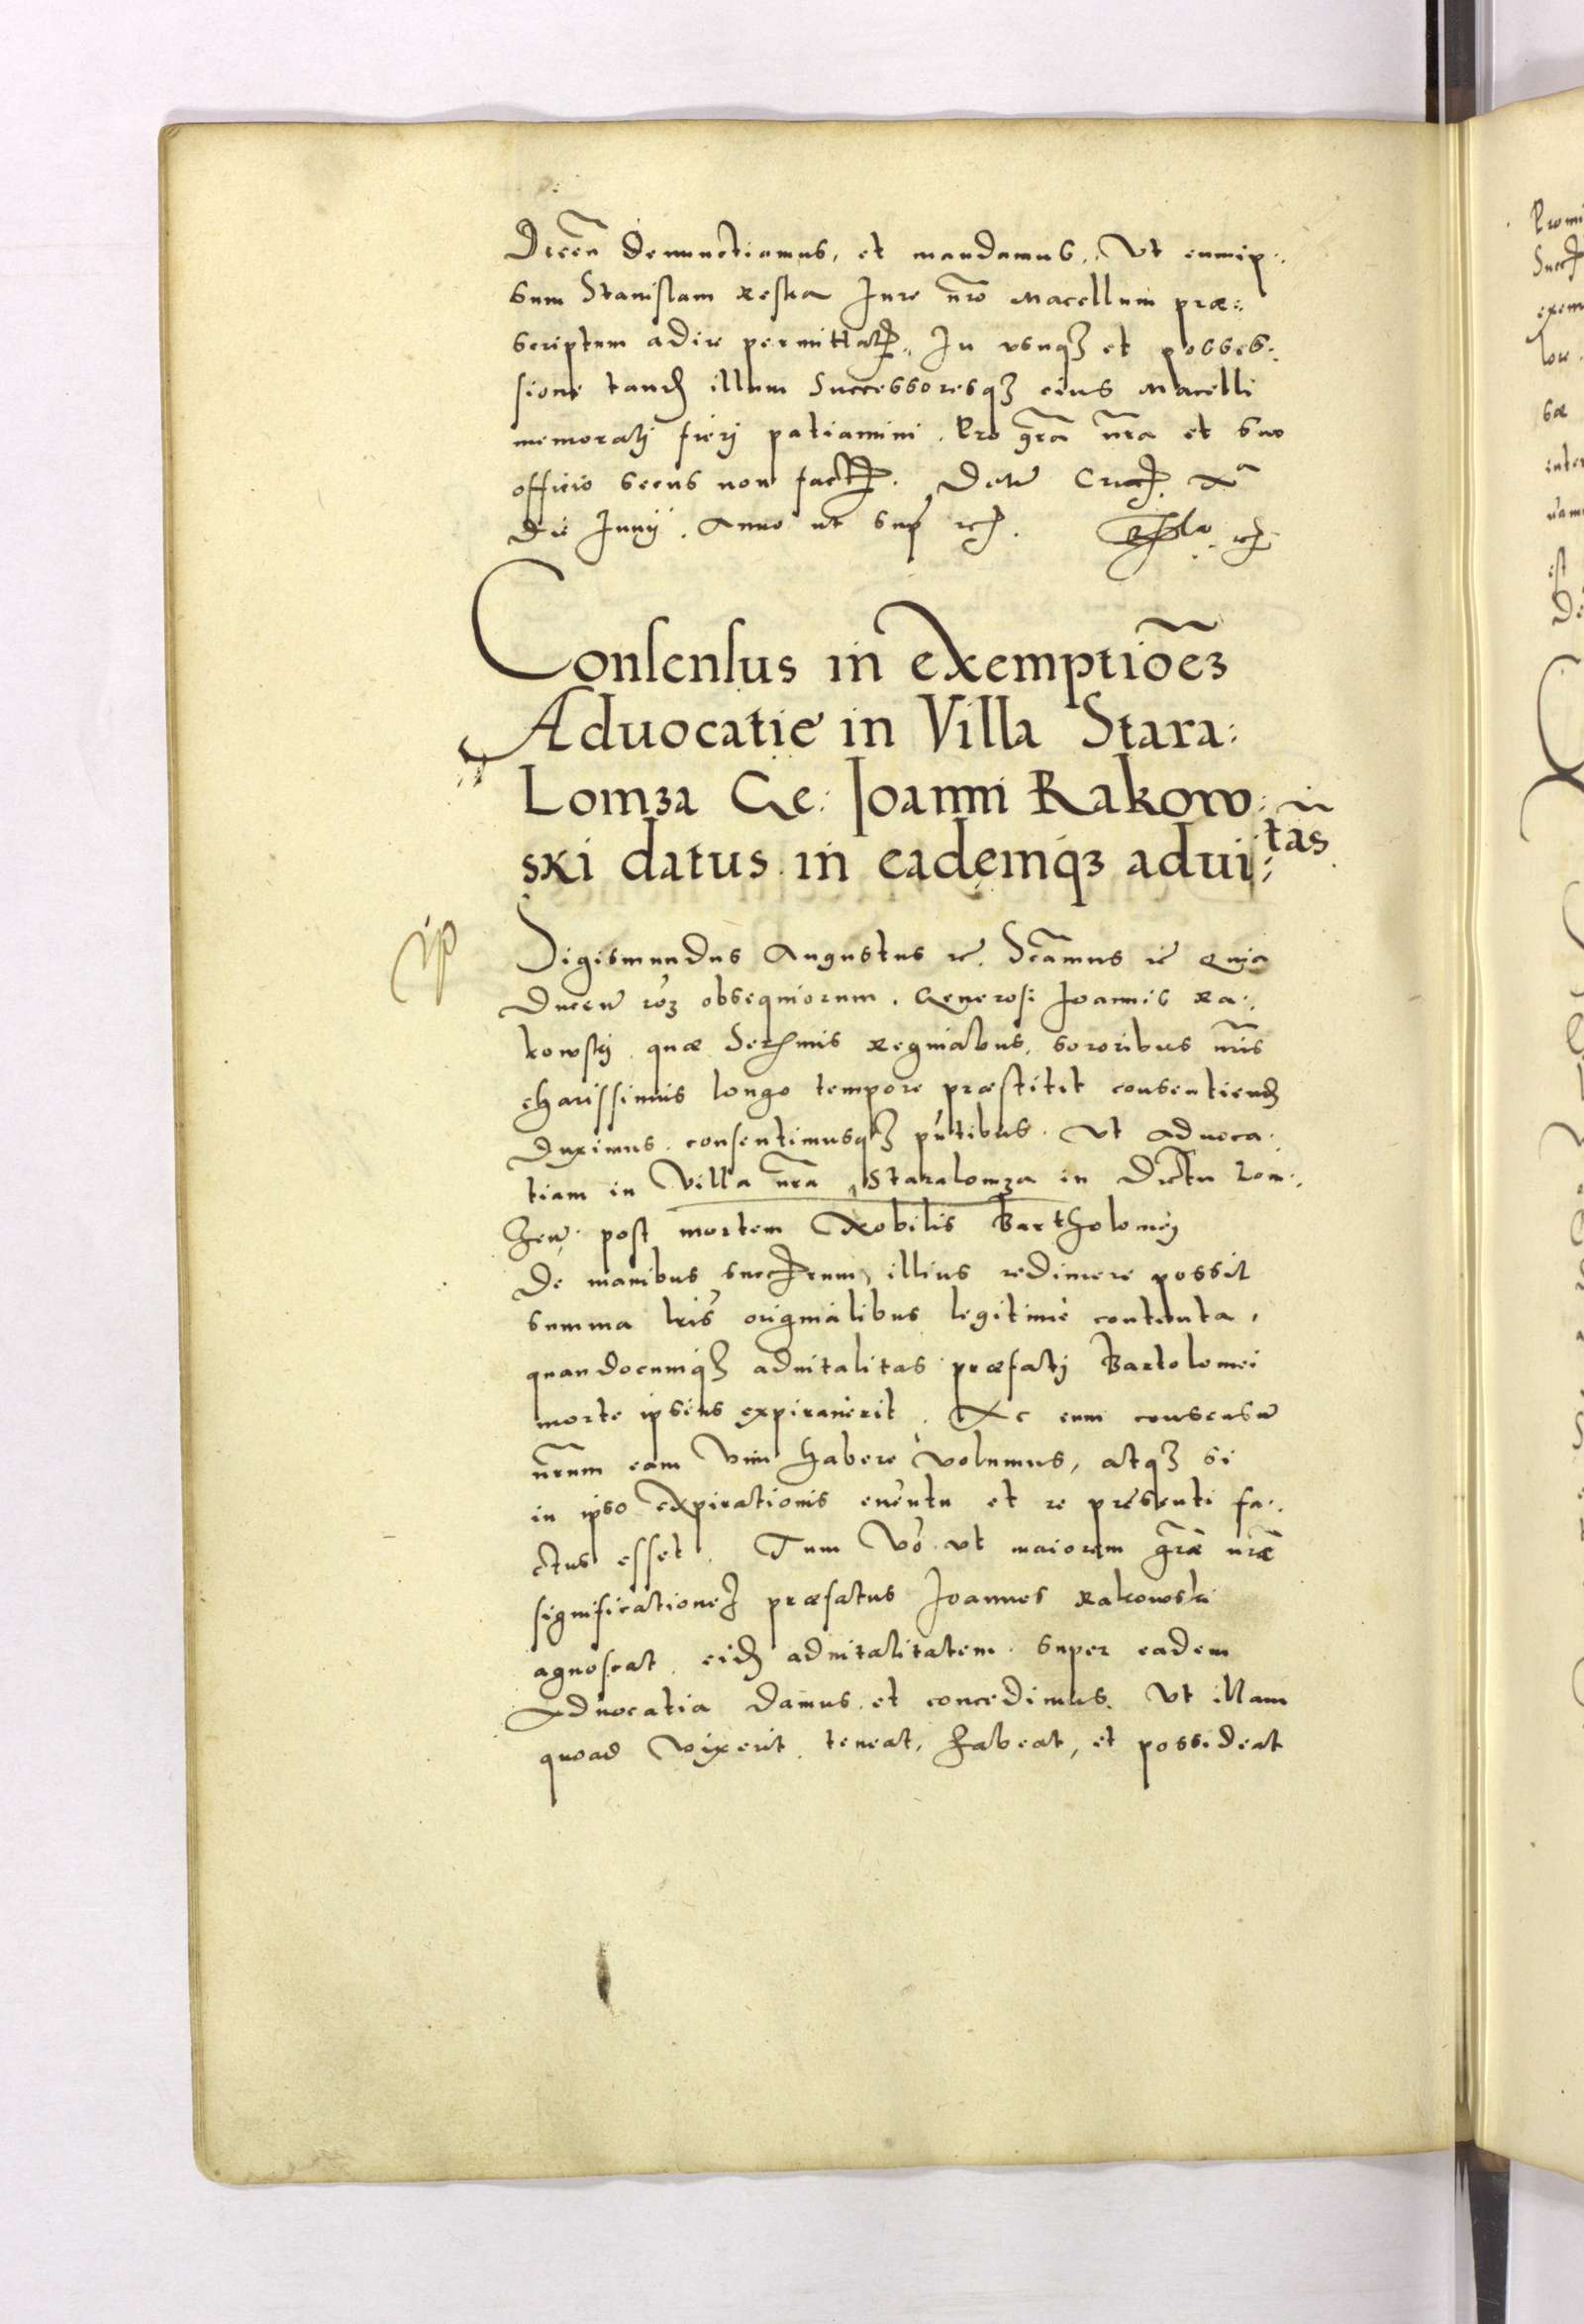 denunctiamus, et mandamus, Ut eumip:
sum Stanislaum Reska Jure nr̃o Macellum præ:
scriptum adire permittat. In usuq3 et posses:
sione tand illum Successoresq3 eius Macelli
memoratj fierj patiamini. Pro grã nr̃a et suo
officio secus non fact. Dat Crac. Xa
die Junij. Anno ut sup rc.
Consensus in exemptiõe3
Aduocatie in Villa Stara:
Lomza Ge: Joanni Rakow:
ski datus in eademq3 advi:tãs
Sigismundus Augustus rc. Quia
obsequiorum. Generosi Joannis Ra:
kowskj quæ Serẽmis Reginabus, sororibus nr̃is
charissimis longo tempore præstitit consentiend
duximus. consentimusq3 pñtibus. Ut aduoca:
tiam in Villa nr̃a Staralomza in Lom:
zen̄. post mortem Nobilis Bartholomej
de manibus illius redimere possit
summa lr̃is originalibus legitime contenta,
quandocumq3 aduitalitas præfatj Bartolomei
morte ipsius expirauerit. consensũ
nr̃um eam Vim habere volumus, atq3 si
in ipso expirationis euentu et re presenti fa:
ctus esset. Tum Vo ut maiorem grãe nr̃ae
significatione præfatus Joannes Rakowski
agnoscat. eid aduitalitatem super eadem
Aduocatia damus et concedimus. Ut illam
quoad vixerit teneat, habeat, et possideat